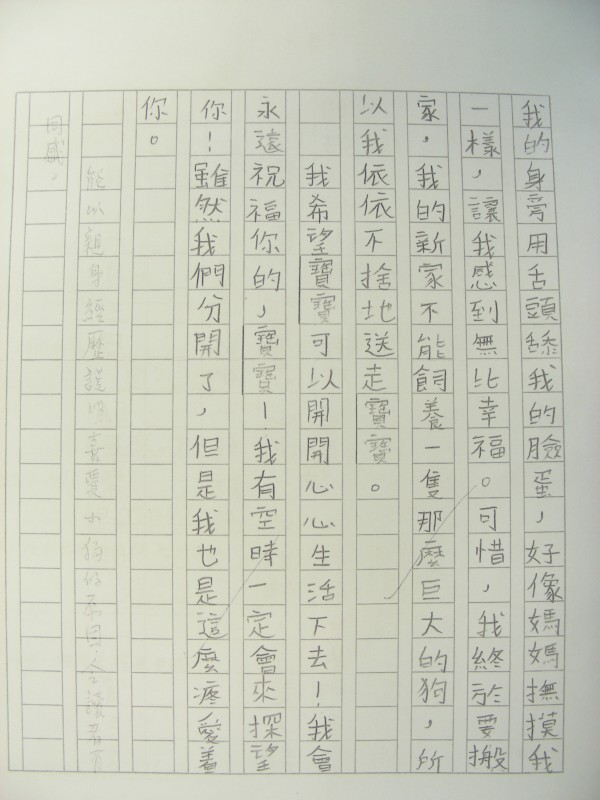 我的身旁用舌頭舔我的臉蛋，好像媽媽撫摸我
一樣，讓我感到無比幸福。可惜，我終於要搬
家，我的新家不能飼養一隻那麼巨大的狗，所
以我依依不捨地送走寶寶。
我希望寶寶可以開開心心生活下去！我會
永遠祝福你的，寶寶！我有空時一定會來探望
你！雖然我們分開了，但是我也是這麼疼愛着
你。
能以親身經歷說明喜愛小狗的原因，令讀者有
同感，